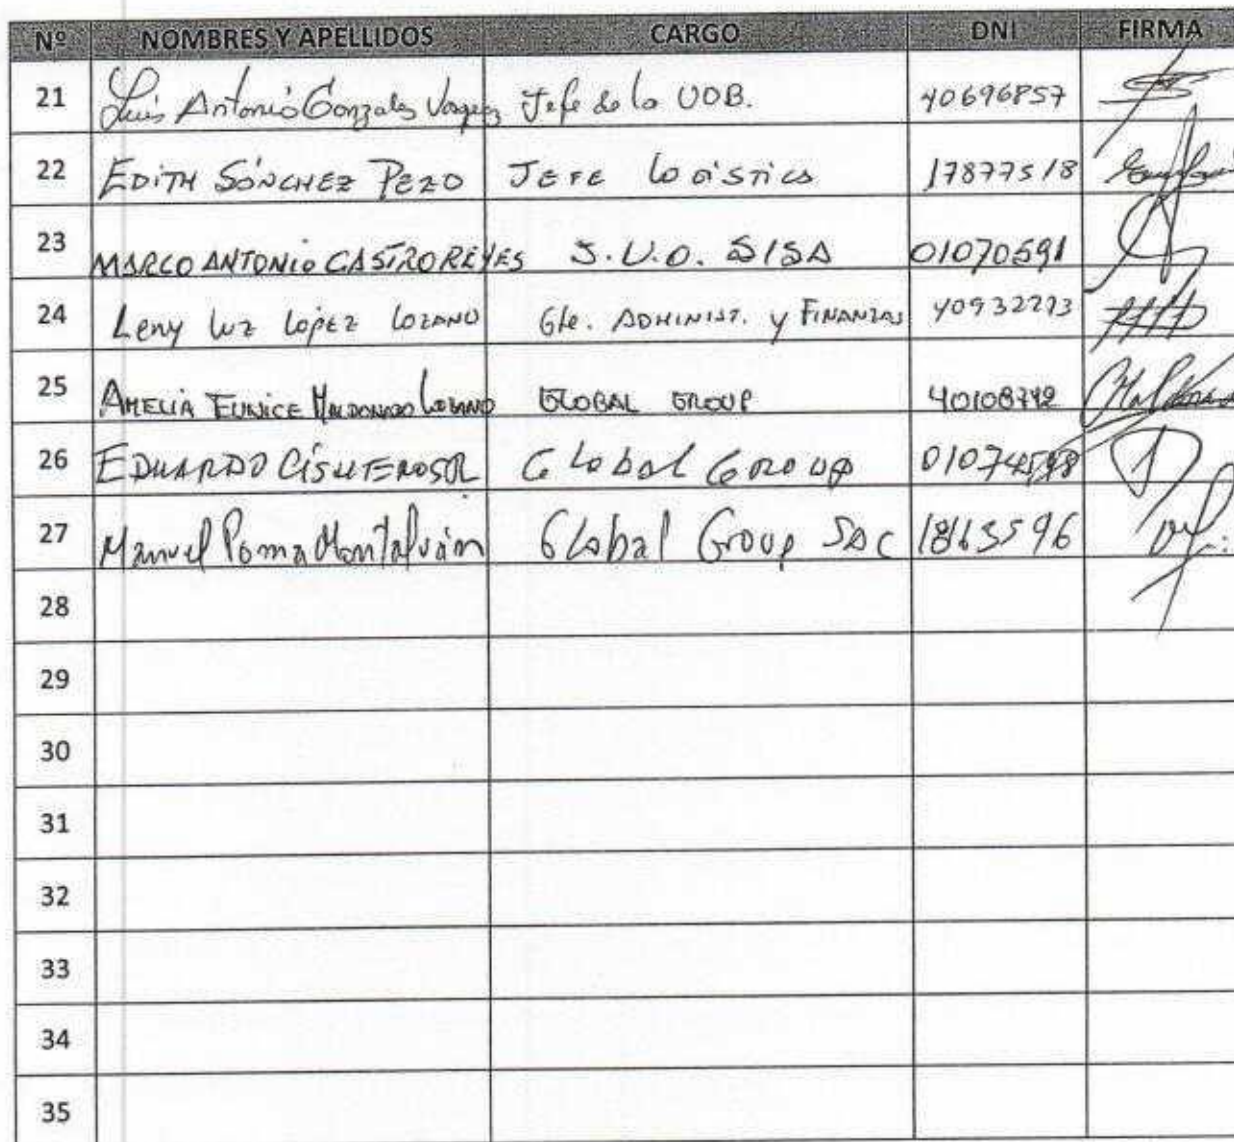 Nº NOMBRES Y APELLIDOS CARGO DNI FIRMA
21 Luis Antonio Gonzales Vasquez Jefe de la UOB. 40696857
22 EDITH SÁNCHEZ PEZO JEFE LOGÍSTICA 17877518
23 MARCO ANTONIO CASTRO REYES J.U.O. SISA 01070591
24 Leny Luz López Lozano Gte. ADMINIST. y FINANZAS 40932273
25 AMELIA EUNICE MALDONADO LOZANO GLOBAL GROUP 40108742
26 EDUARDO Global Group
27 Manuel Poma Montalván Global Group SAC
28
29
30
31
32
33
34
35